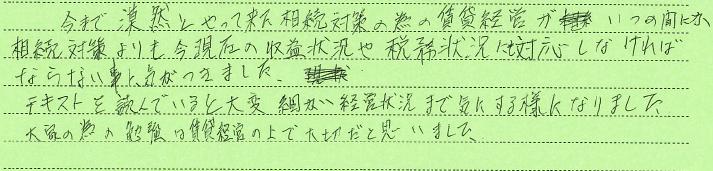 今まで漠然とやって来た相続対策の為の賃貸経営がいつの間にか
相続対策よりも今現在の収益状況や税務状況に対応しなければ
ならない事に気がつきました。
テキストを読んでいると大変細かい経営状況まで気にする様になりました
大家の為の勉強は賃貸経営の上で大切だと思いました。